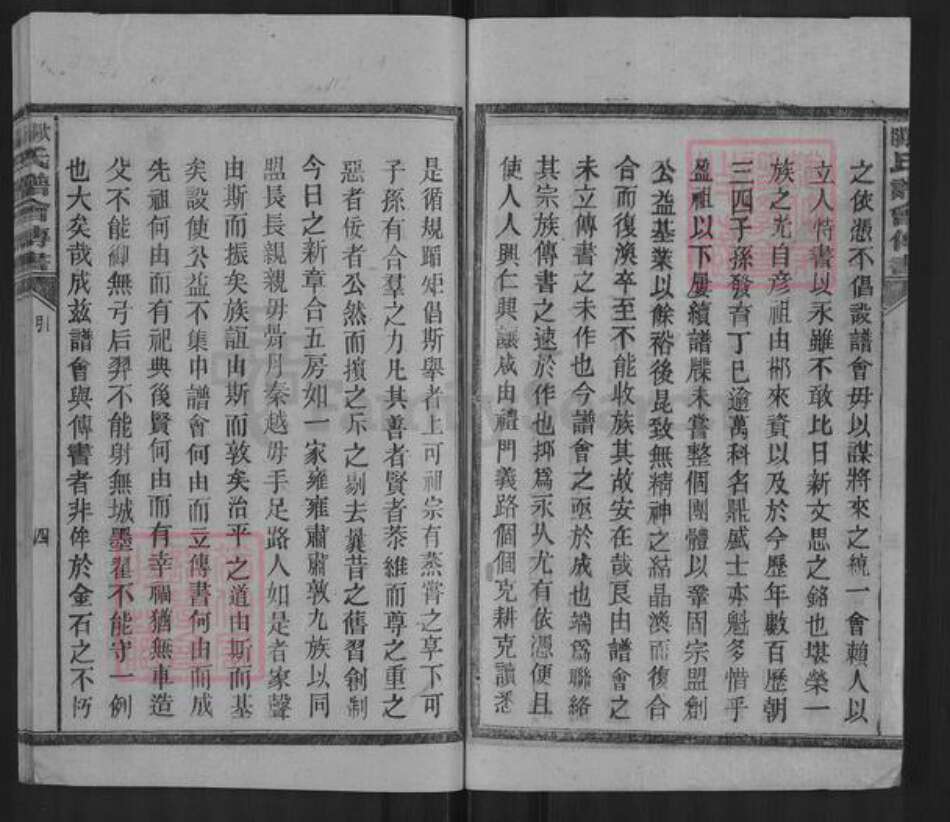 之依憑不倡設譜會毋以謀將來之統一會賴人以
立人待書以永雖不敢比日新文思之銘也堪榮一
族之光自彥祖由郴來資以及於今歷年數百歷朝
三四子孫發育丁已逾萬科名鼎盛士亦魁多惜乎
盈祖以下屢續譜牒未嘗整個團體以鞏固宗盟創
公益基業以餘裕後昆致無精神之結晶渙而復合
合而復渙卒至不能收族其故安在哉良由譜會之
未立傳書之未作也今譜會之亟於成也端為聯絡
其宗族傳書之速於作也抑爲永久尤有依憑便且
使人人興仁興讓咸由禮門義路個個克耕克讀悉
是循規蹈矩倡斯舉者上可祖宗有蒸嘗之享下可
子孫有合羣之力凡其善者賢者恭維而尊之重之
惡者佞者公然而擯之斥之剔去曩昔之舊習創制
今日之新章合五房如一家雍雍肅肅敦九族以同
盟長長親親毋胥月秦越毋手足路人如是者家聲
由斯而振矣族誼由斯而敦矣治平之道由斯而基
矣設使公益不集中譜會何由而立傳書何由而成
先祖何由而有祀典後賢何由而有幸福猶無車造
父不能御無弓后羿不能射無城墨翟不能守一例
也大矣哉成兹譜會與傳書者非侔於金石之不朽
歐氏譜會傳書
引
四